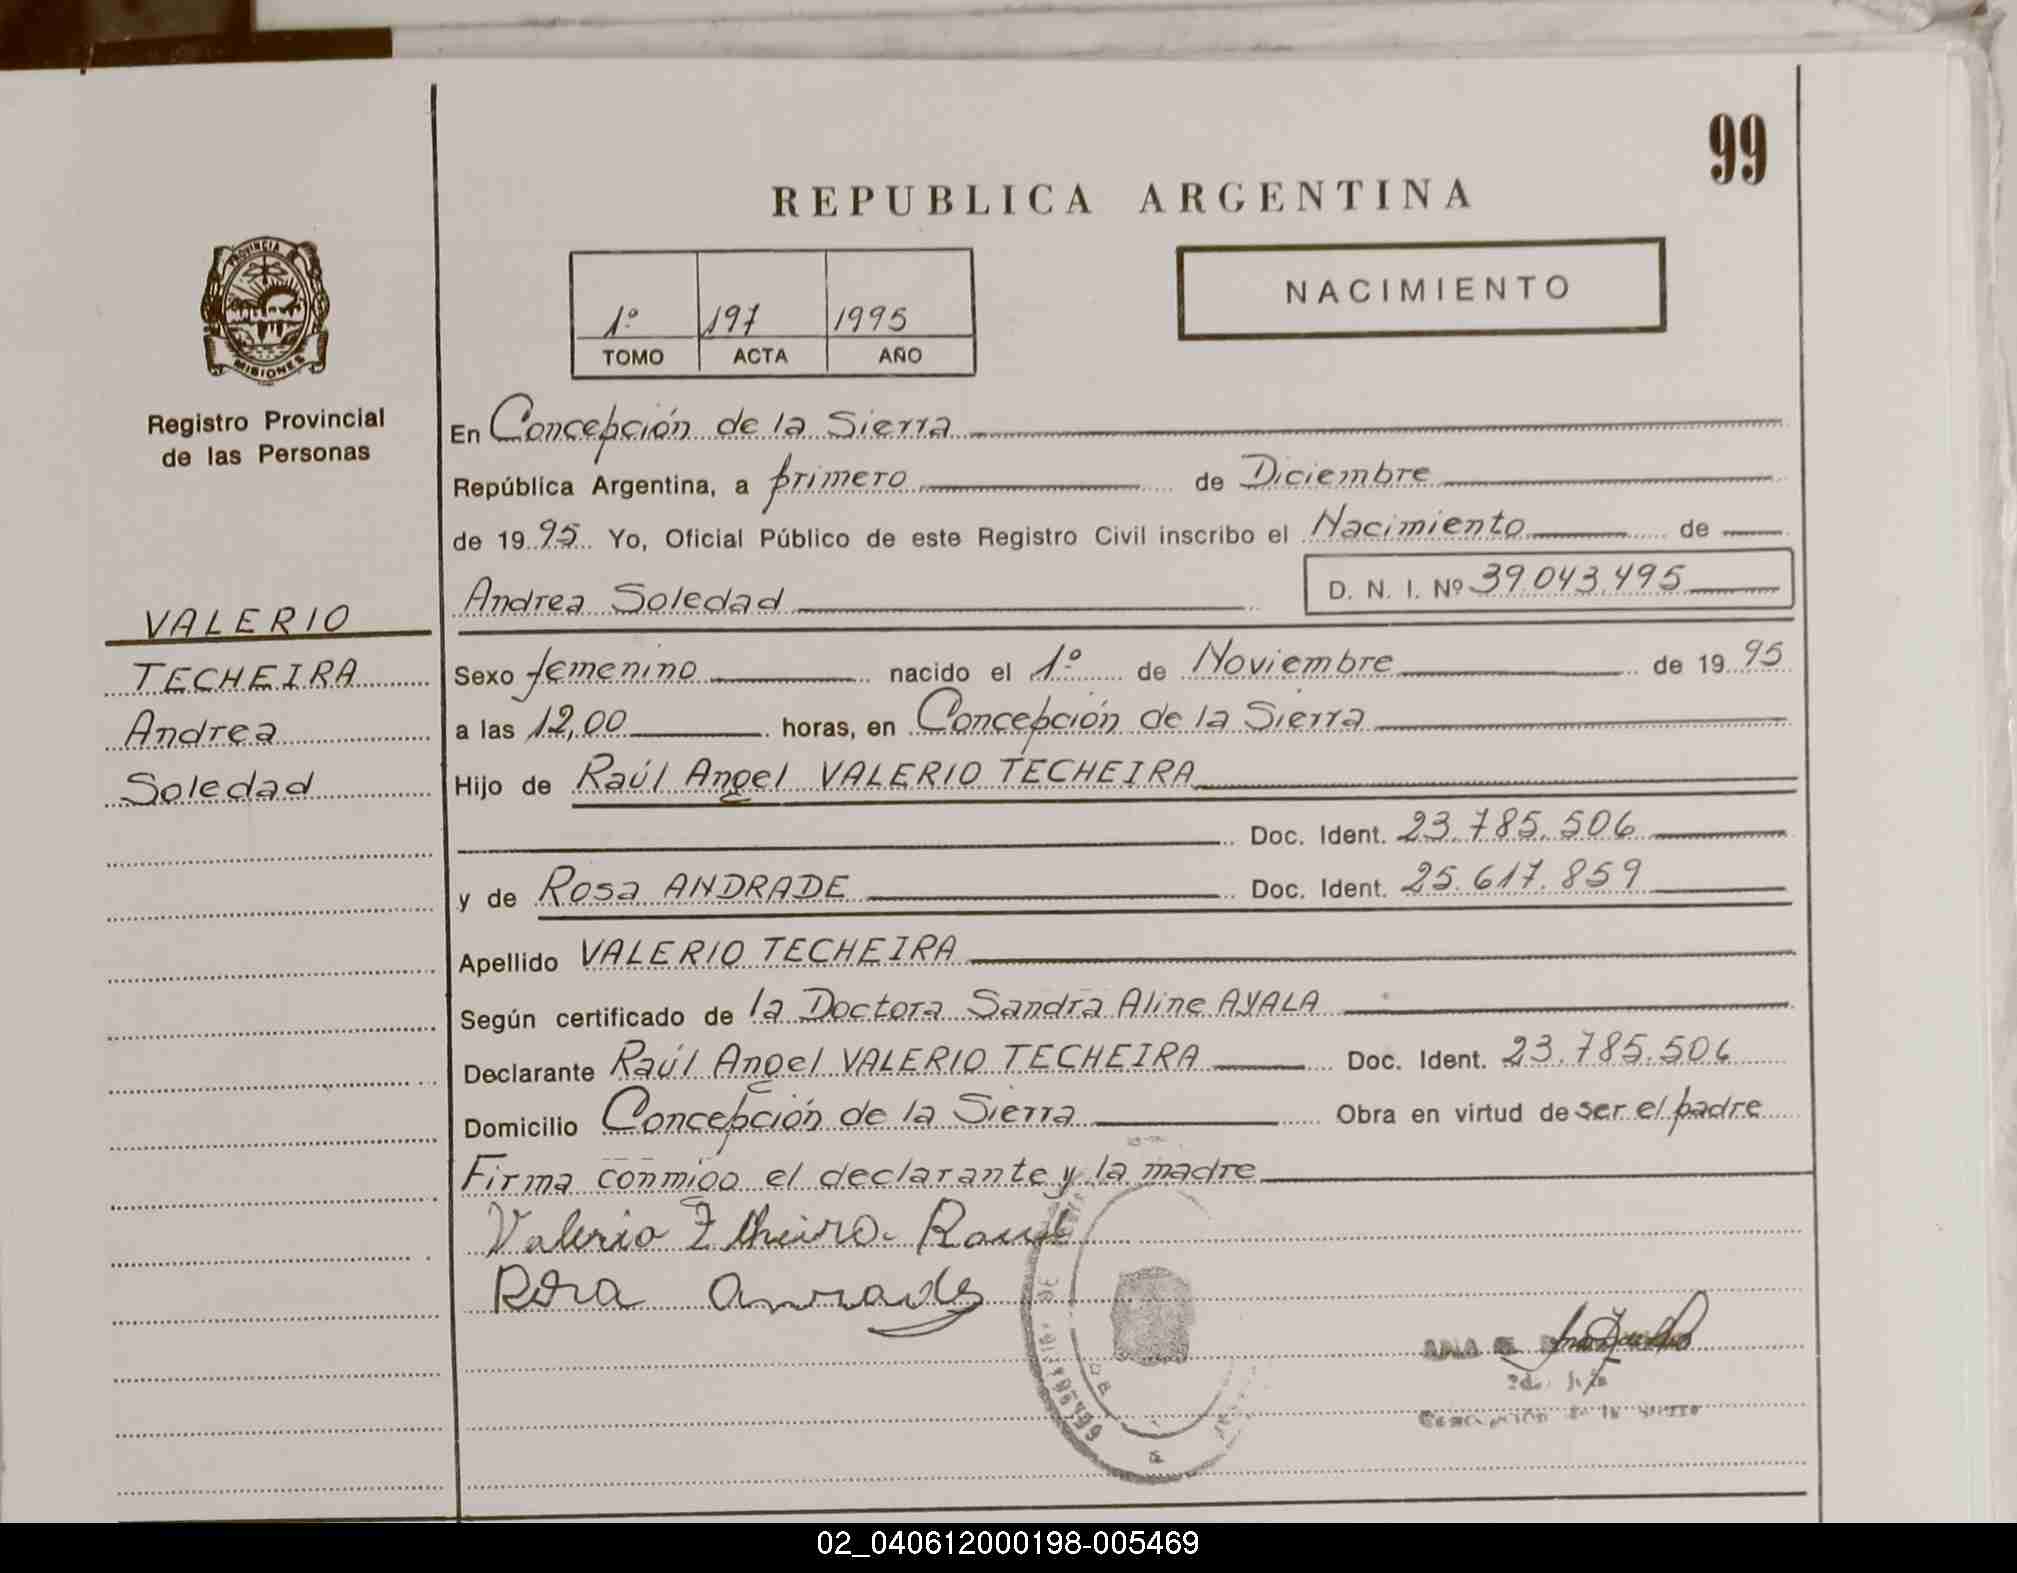 99
REPUBLICA ARGENTINA
NACIMIENTO
1º 197 1995
TOMO ACTA AÑO
PROVINCIA
MISIONES
Registro Provincial
de las Personas
VALERIO
TECHEIRA
Andrea
Soledad
En Concepción de la Sierra
República Argentina, a primero de Diciembre
de 1995 Yo, Oficial Público de este Registro Civil inscribo el Nacimiento de
Andrea Soledad D. N. I. Nº 39.043.495
Sexo femenino nacido el 1º de Noviembre de 1995
a las 12,00 horas, en Concepción de la Sierra
Hijo de Raúl Angel VALERIO TECHEIRA
Doc. Ident. 23.785.506
y de Rosa ANDRADE Doc. Ident. 25.617.859
Apellido VALERIO TECHEIRA
Según certificado de la Doctora Sandra Aline AYALA
Declarante Raúl Angel VALERIO TECHEIRA Doc. Ident. 23.785.506
Domicilio Concepción de la Sierra Obra en virtud de ser el padre
Firma conmigo el declarante y la madre
Valerio Techeira Raul
Rosa Andrade
ANA
Concepción de la Sierra
02_040612000198-005469